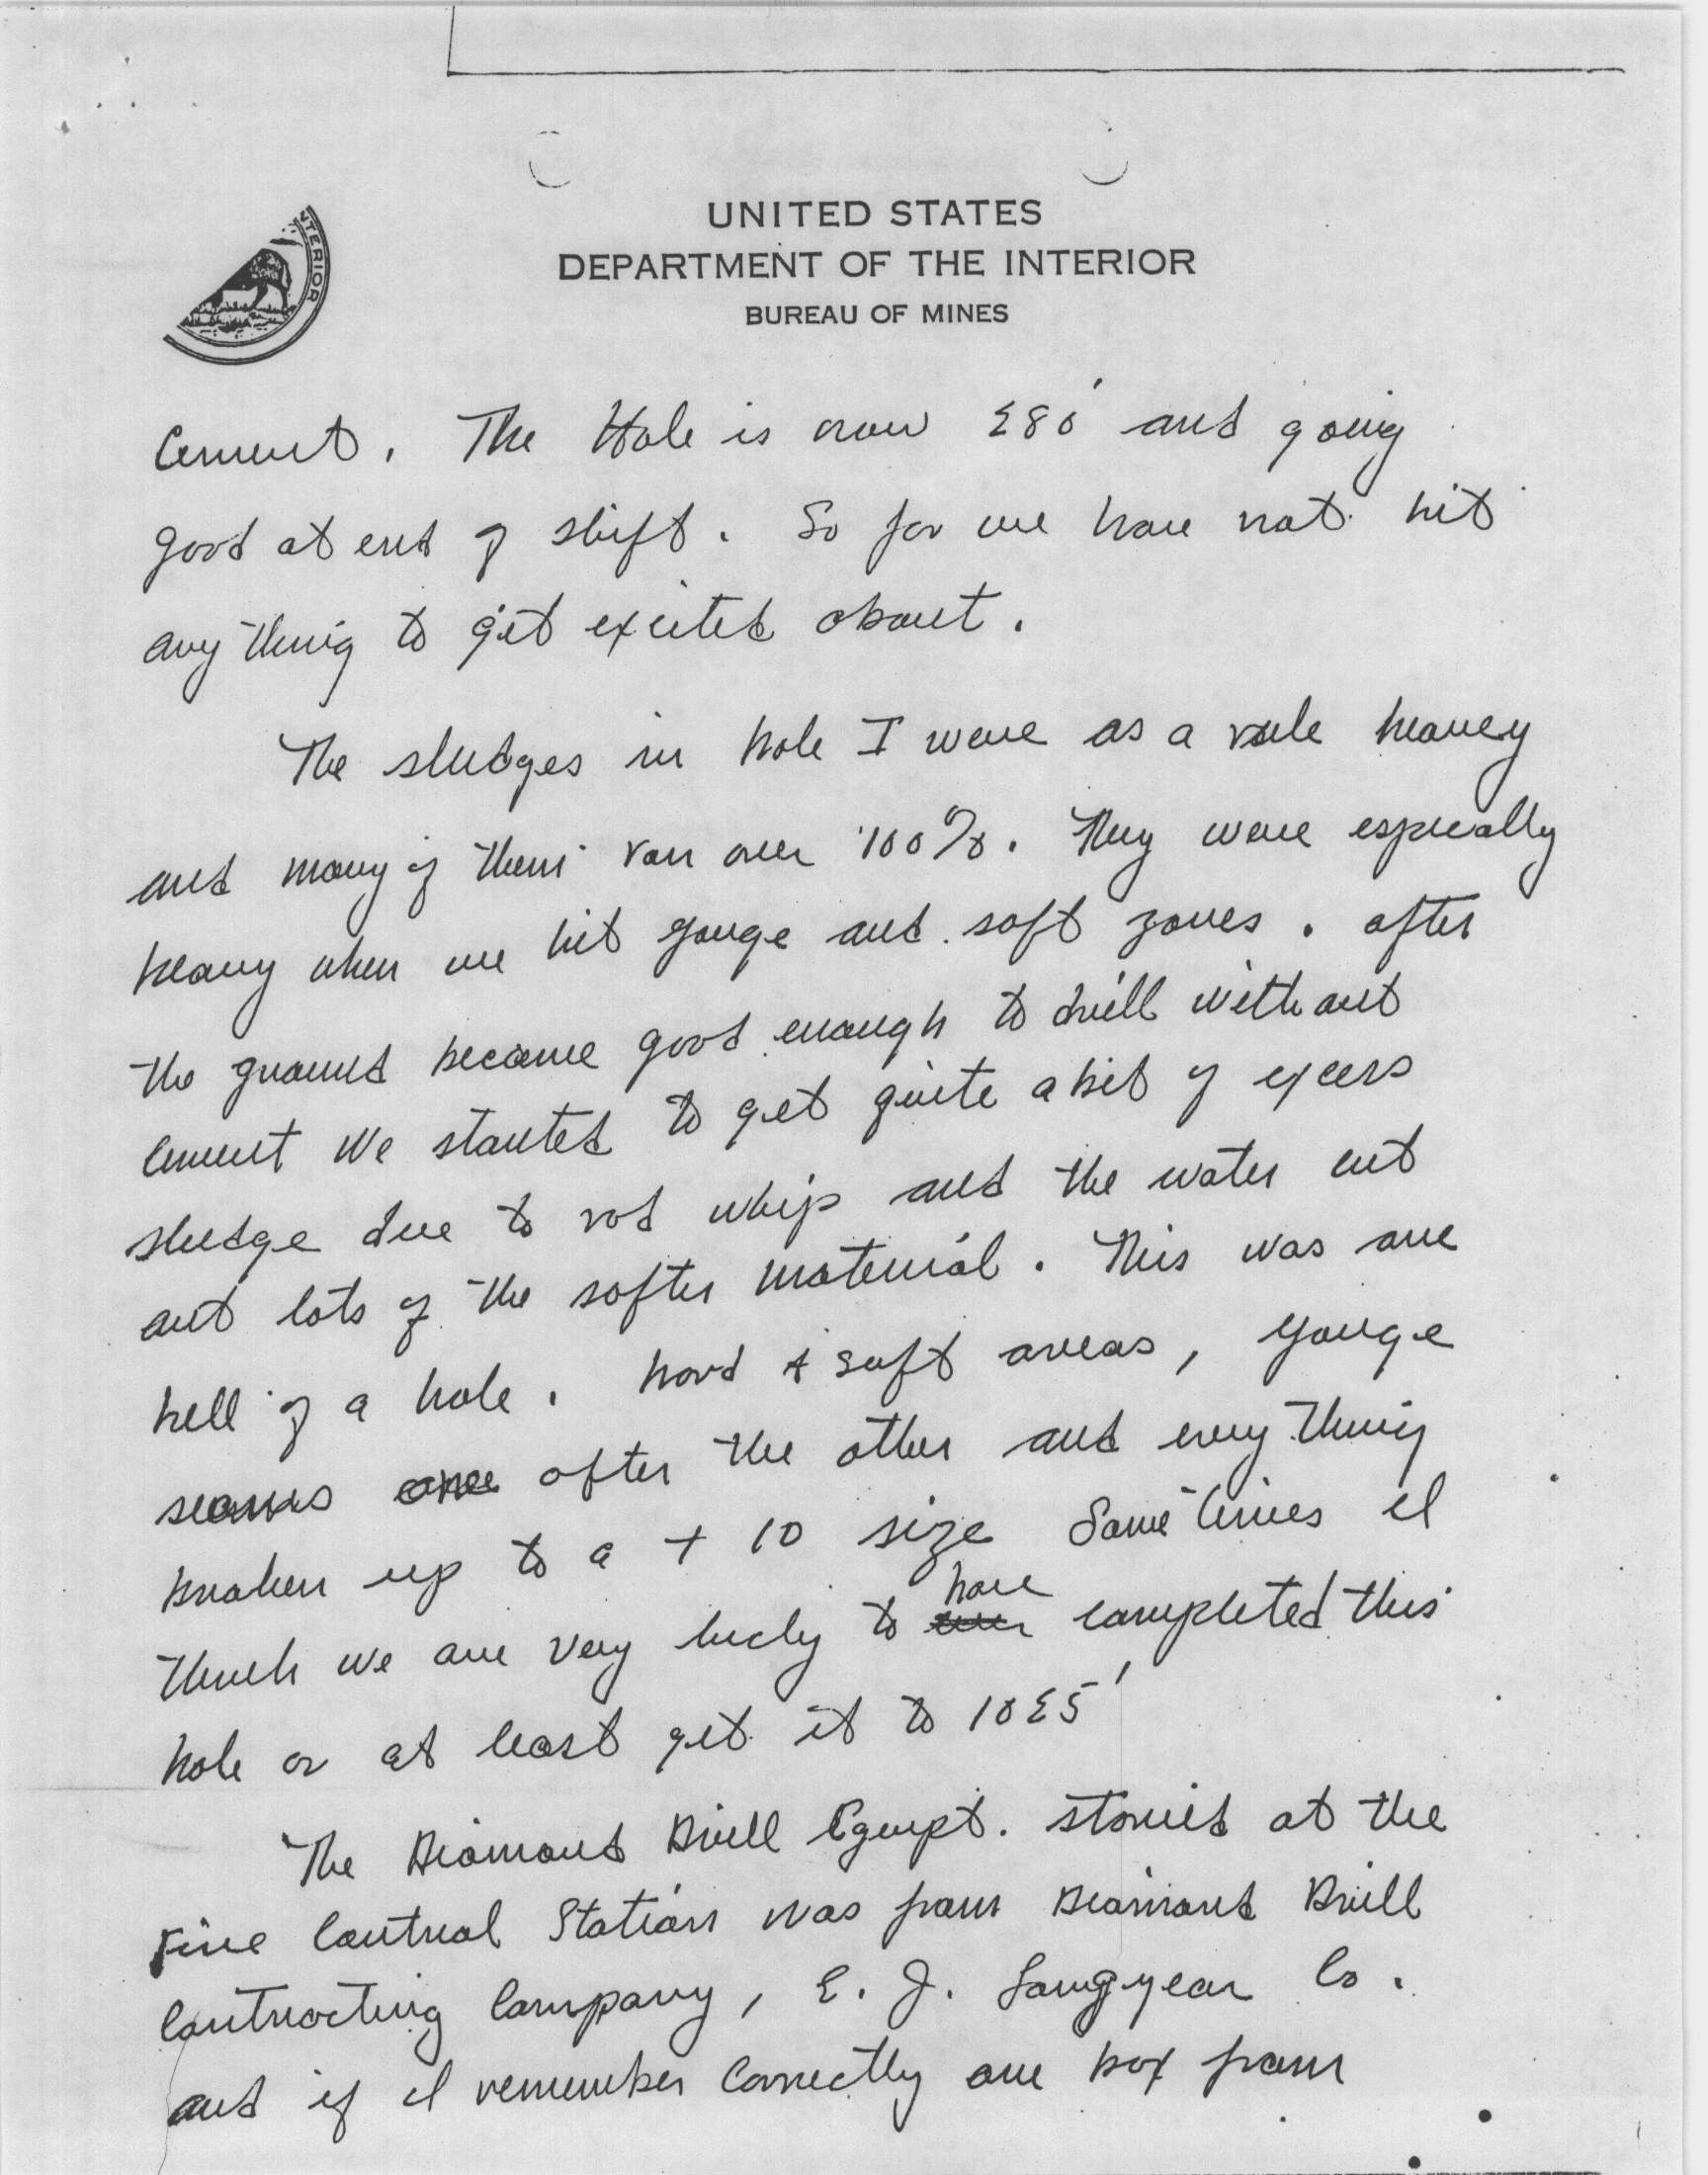 UNITED STATES
DEPARTMENT OF THE INTERIOR
BUREAU OF MINES
TERIOR
Cement. The Hole is now 280' and going
good at end of shift. So far we have not hit
any thing to get excited about.
The sludges in hole I were as a rule heavey
and many of them ran over 100%. They were especially
heavy when we hit gouge and soft zones. after
the ground became good enough to drill without
cement we started to get quite a bit of excess
sludge due to rod whip and the water cut
out lots of the softer material. This was one
hell of a hole. hard & soft areas, gouge
seams one after the other and every thing
broken up to a + 10 size Some times I
think we are very lucky to have completed this
hole or at least get it to 1025'
The Diamond Drill Equipt. stored at the
Fire Control Station was from Diamond Drill
Contracting Company, E. J. Longyear Co.
and if I remember Correctly one box from